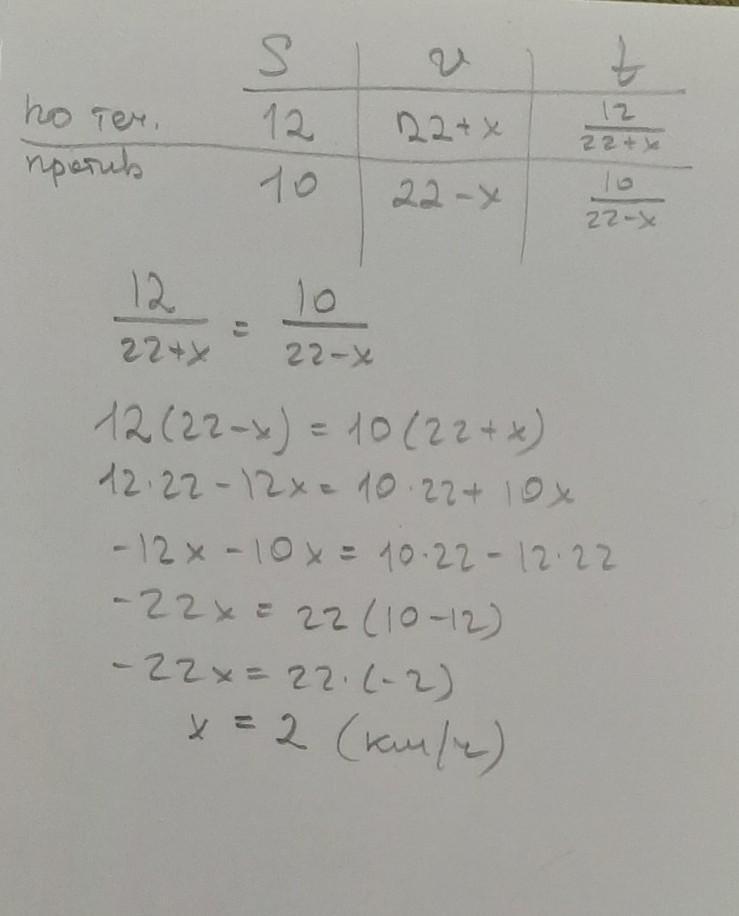 S v t
по теч. 12 22+x 12/(22+x)
против 10 22-x 10/(22-x)
12/(22+x) = 10/(22-x)
12(22-x) = 10(22+x)
12·22-12x=10·22+10x
-12x-10x=10·22-12·22
-22x=22(10-12)
-22x=22·(-2)
x=2 (км/ч)